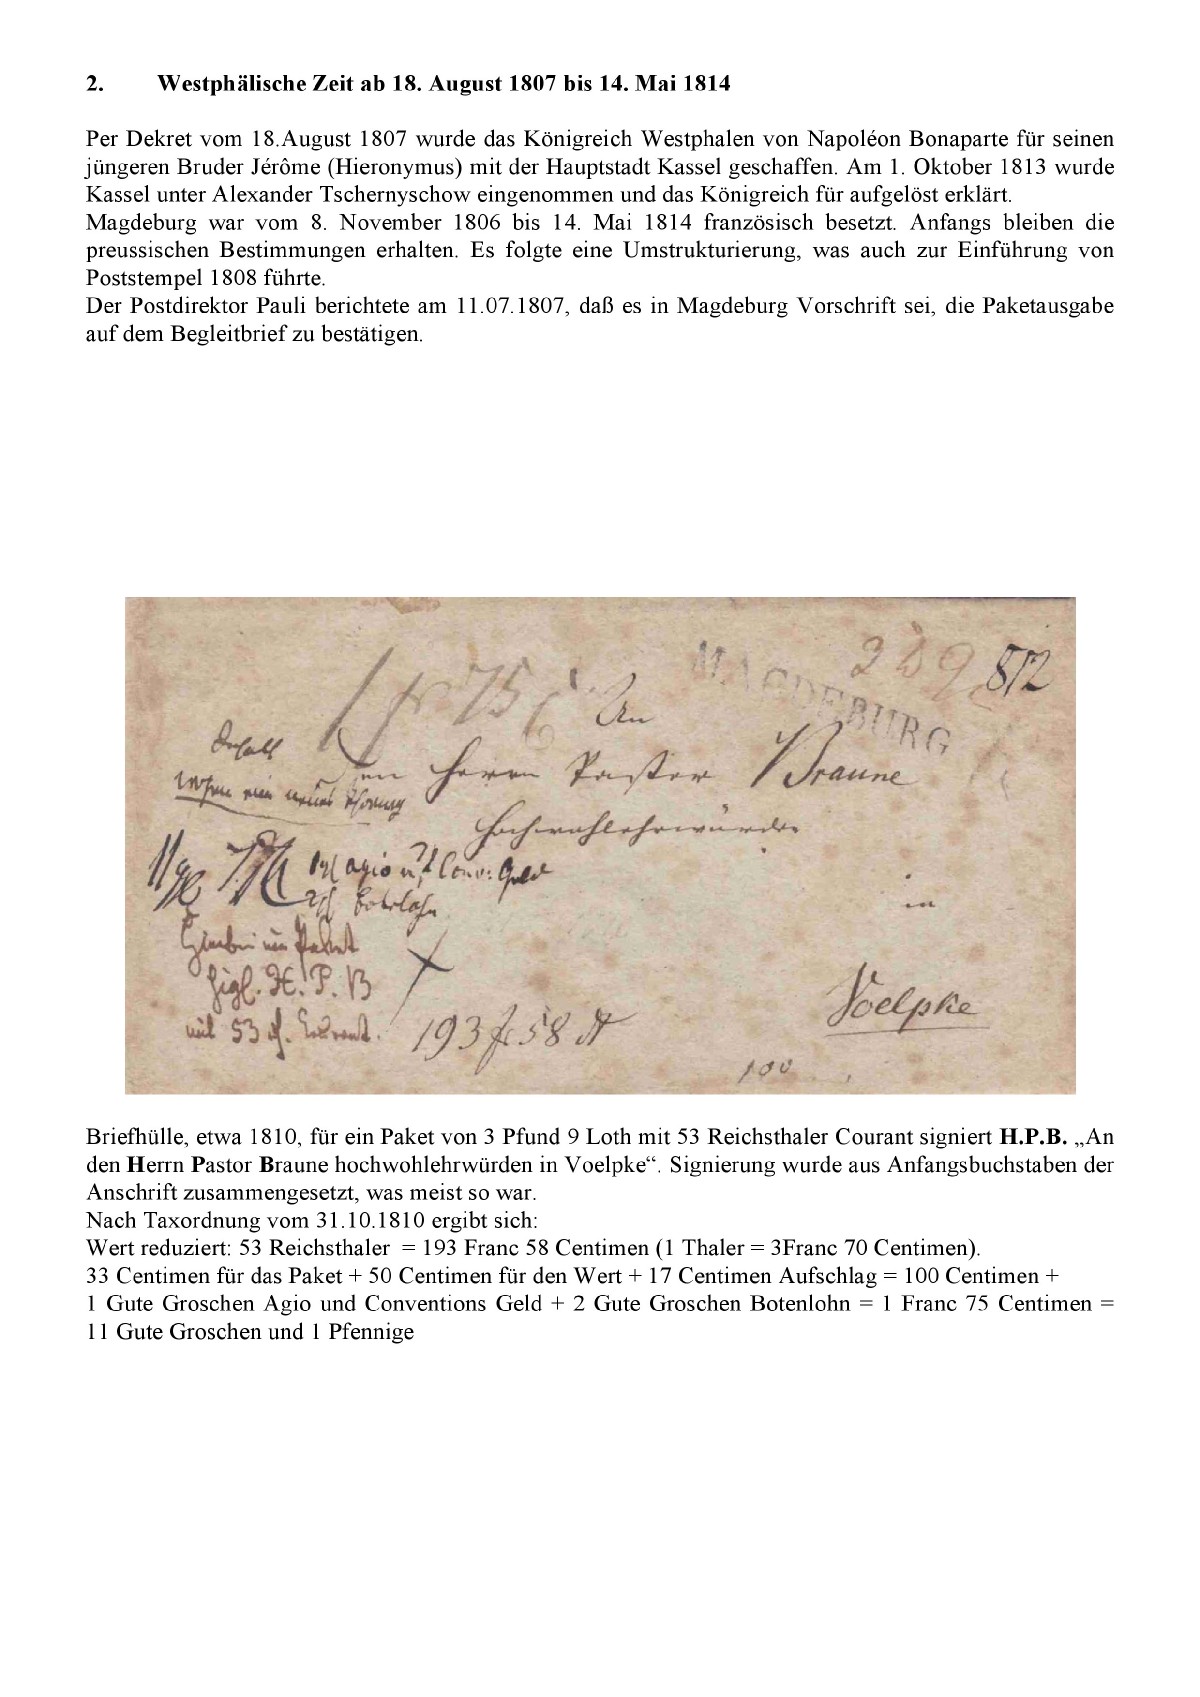 2. Westphälische Zeit ab 18. August 1807 bis 14. Mai 1814
Per Dekret vom 18.August 1807 wurde das Königreich Westphalen von Napoléon Bonaparte für seinen
jüngeren Bruder Jérôme (Hieronymus) mit der Hauptstadt Kassel geschaffen. Am 1. Oktober 1813 wurde
Kassel unter Alexander Tschernyschow eingenommen und das Königreich für aufgelöst erklärt.
Magdeburg war vom 8. November 1806 bis 14. Mai 1814 französisch besetzt. Anfangs bleiben die
preussischen Bestimmungen erhalten. Es folgte eine Umstrukturierung, was auch zur Einführung von
Poststempel 1808 führte.
Der Postdirektor Pauli berichtete am 11.07.1807, daß es in Magdeburg Vorschrift sei, die Paketausgabe
auf dem Begleitbrief zu bestätigen.
812
MAGDEBURG
75
An
den Herrn Pastor Braune
hochwohlehrwürden
agio Conv: Geld
Botelohn
in
Hierbei ein Paket
sigl. H. P. B
Voelpke
mit 53 Courant.
193 fc 58
100
Briefhülle, etwa 1810, für ein Paket von 3 Pfund 9 Loth mit 53 Reichsthaler Courant signiert H.P.B. „An
den Herrn Pastor Braune hochwohlehrwürden in Voelpke“. Signierung wurde aus Anfangsbuchstaben der
Anschrift zusammengesetzt, was meist so war.
Nach Taxordnung vom 31.10.1810 ergibt sich:
Wert reduziert: 53 Reichsthaler = 193 Franc 58 Centimen (1 Thaler = 3Franc 70 Centimen).
33 Centimen für das Paket + 50 Centimen für den Wert + 17 Centimen Aufschlag = 100 Centimen +
1 Gute Groschen Agio und Conventions Geld + 2 Gute Groschen Botenlohn = 1 Franc 75 Centimen =
11 Gute Groschen und 1 Pfennige